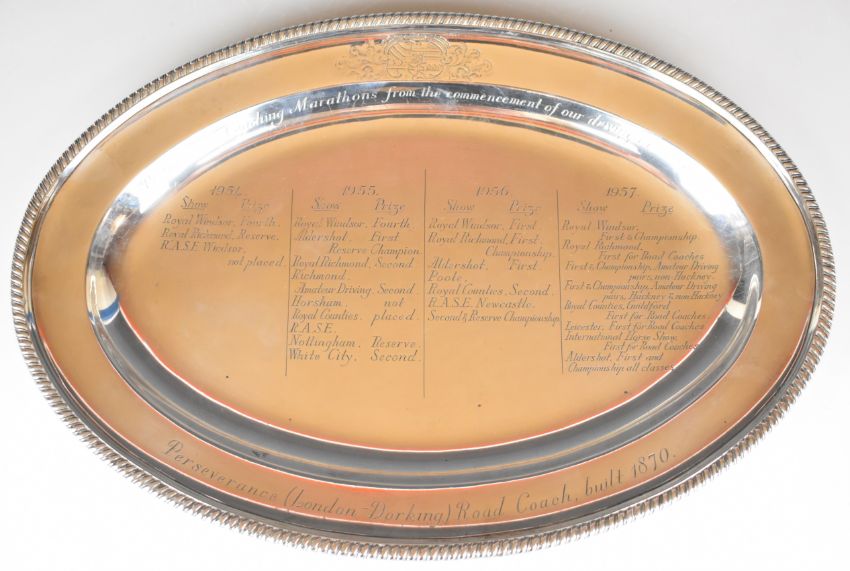 Coaching Marathons from the commencement of our driving
1954.
Show Prize
Royal Windsor, Fourth.
Royal Richmond, Reserve.
R.A.S.E. Windsor,
not placed.
1955.
Show Prize
Royal Windsor, Fourth.
Aldershot, First
Reserve Champion.
Royal Richmond, Second
Richmond,
Amateur Driving, Second
Horsham, not
Royal Counties, placed.
R.A.S.E.
Nottingham, Reserve.
White City, Second.
1956.
Show Prize
Royal Windsor, First.
Royal Richmond, First.
Championship.
Aldershot, First.
Poole,
Royal Counties, Second.
R.A.S.E. Newcastle,
Second & Reserve Championship.
1957.
Show Prize
Royal Windsor,
First & Championship
Royal Richmond,
First for Road Coaches
First & Championship, Amateur Driving
pairs, non Hackney.
First & Championship, Amateur Driving
pairs, Hackney & non Hackney
Royal Counties, Guildford
First for Road Coaches.
Leicester, First for Road Coaches
International Horse Show,
First for Road Coaches
Aldershot, First and
Championship all classes
Perseverance (London-Dorking) Road Coach, built 1870.